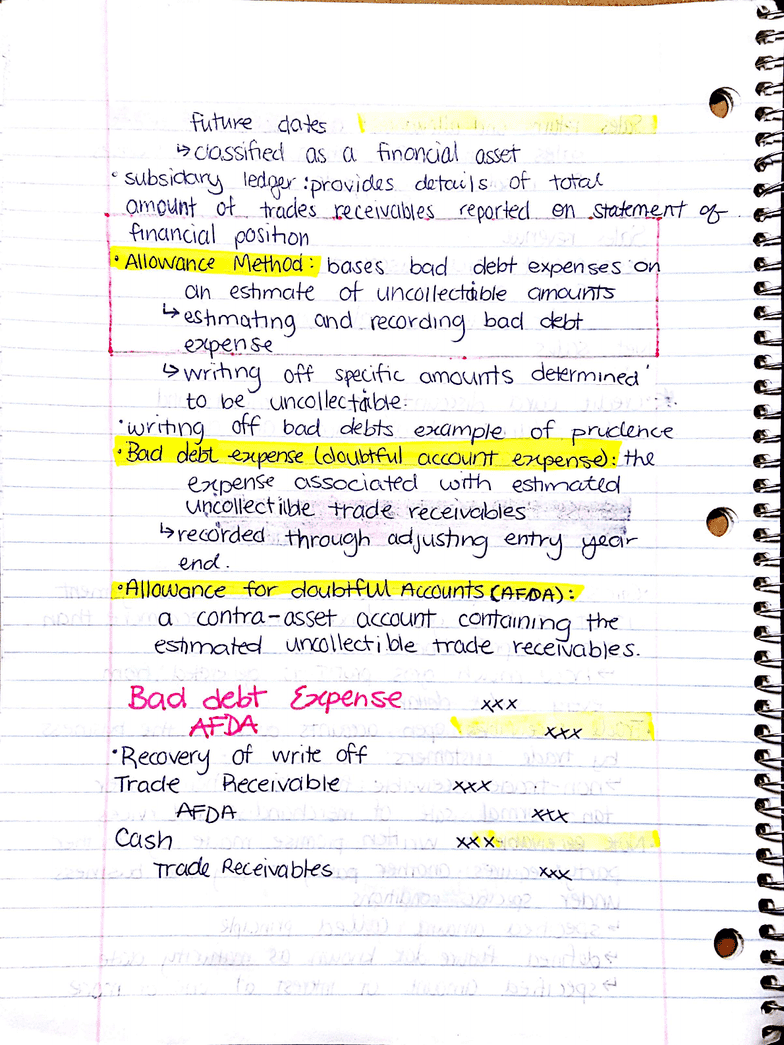 future dates
↳classified as a financial asset
• subsidary ledger: provides details of total
amount of trades receivables reported on statement of
financial position
• Allowance Method: bases bad debt expenses on
an estimate of uncollectable amounts
↳estimating and recording bad debt
expense
↳writing off specific amounts determined
to be uncollectable.
• writing off bad debts example of prudence
• Bad debt expense (doubtful account expense): the
expense associated with estimated
uncollectible trade receivables
↳recorded through adjusting entry year
end.
• Allowance for doubtful Accounts (AFDA):
a contra-asset account containing the
estimated uncollectible trade receivables.
Bad debt Expense xxx
AFDA xxx
• Recovery of write off
Trade Receivable xxx
AFDA xxx
Cash xxx
Trade Receivables xxx